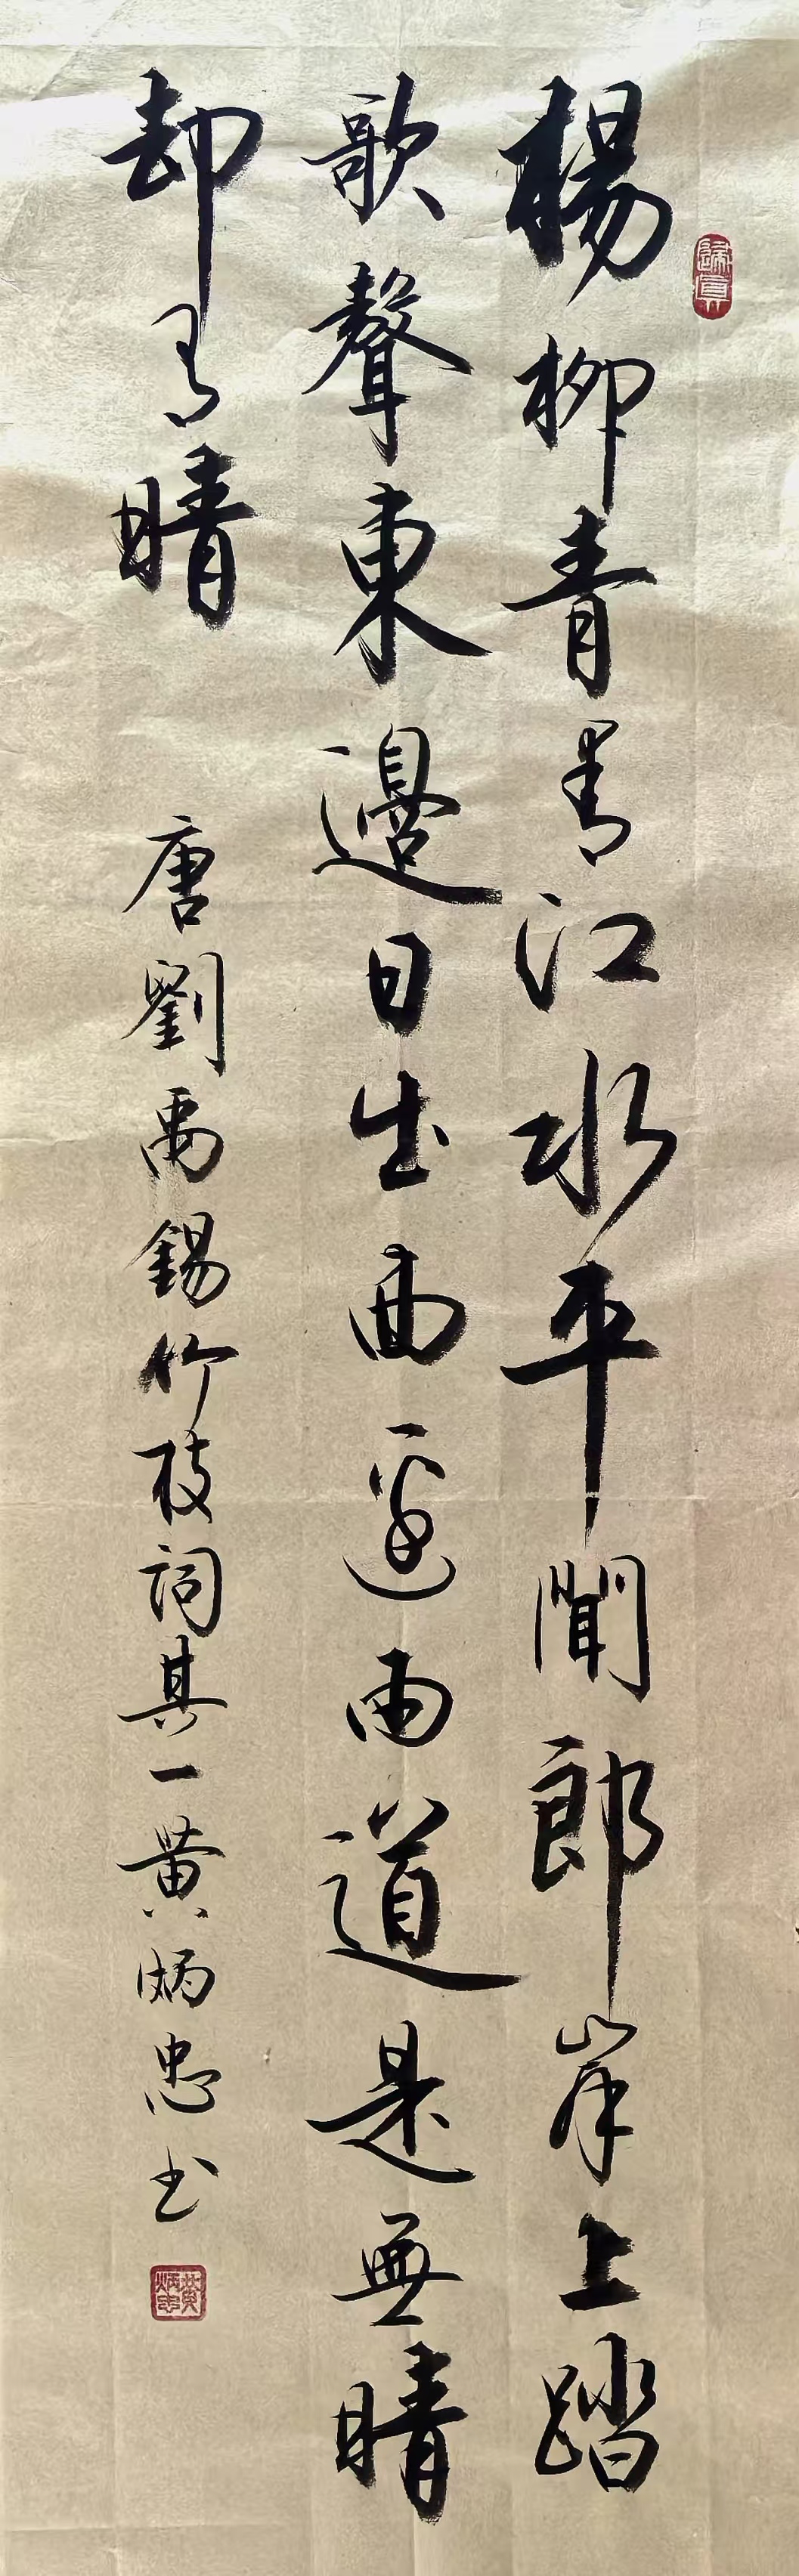 歸真
楊柳青青江水平聞郎岸上踏
歌聲東邊日出西邊雨道是無晴
却有晴
唐劉禹錫竹枝詞其一黄炳忠书
黄炳忠